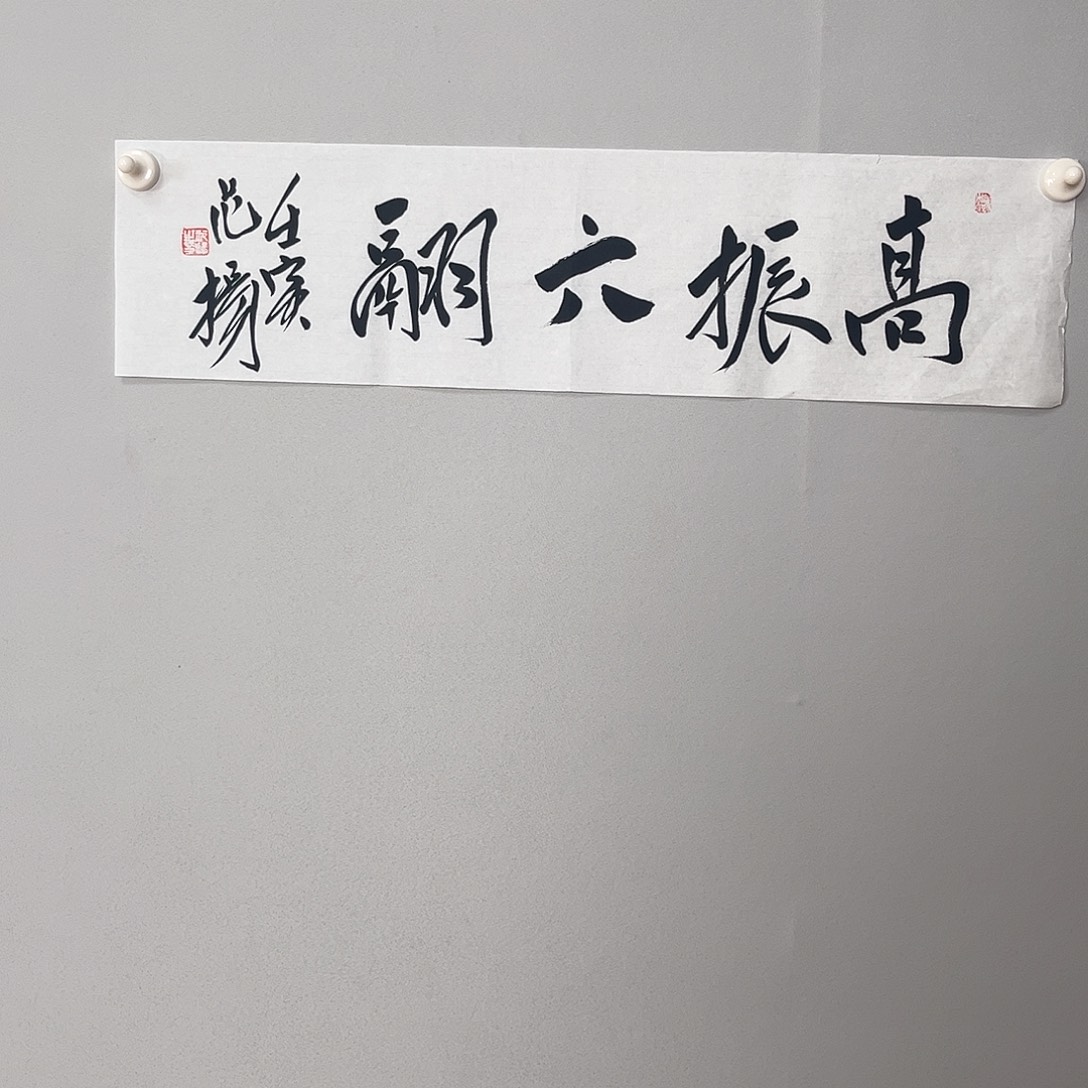 高振六翮
壬寅
范